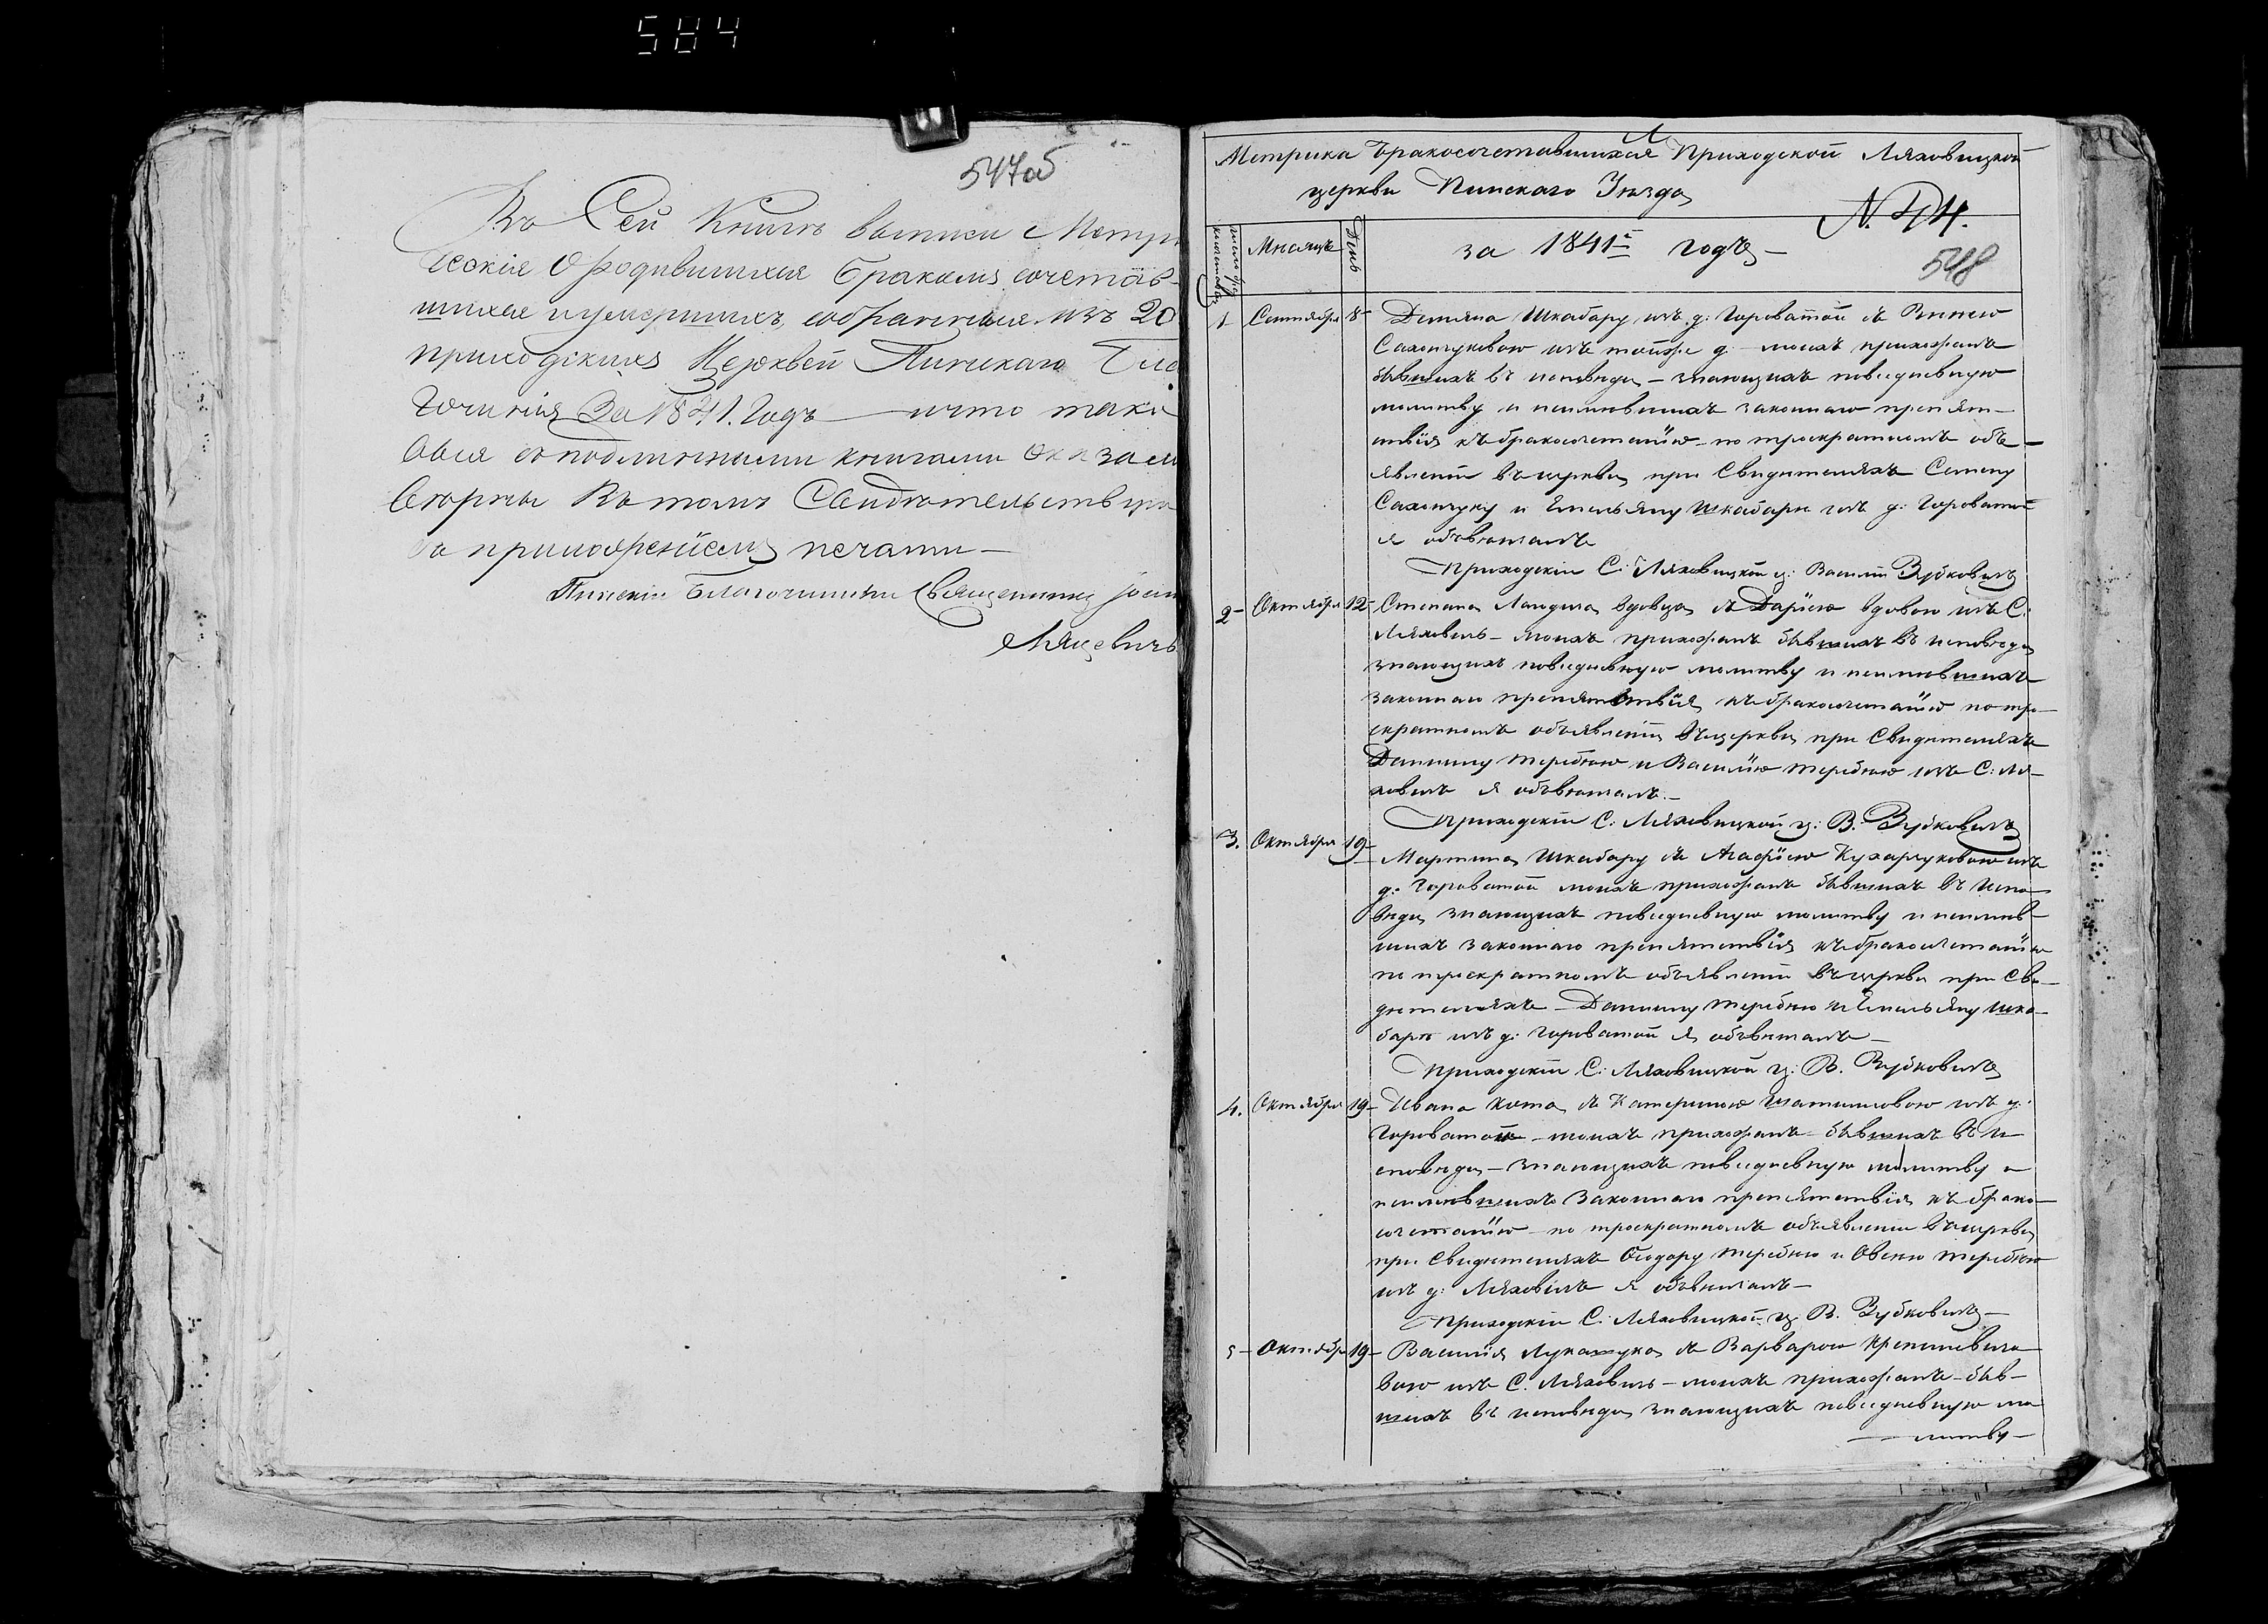 584
547об
Въ Сей Книгѣ выписи Метри
ческія О родившихся бракомъ сочетав-
шихся и умершихъ, собранныя изъ 20
приходскихъ Церквей Пинскаго Бла
гочинія За 1841. Годъ — и что тако
выя съ подлинными книгами оказали
вѣрны Въ томъ Свидѣтельствую
съ приложеніемъ печати —
Пинскій Благочинный Священникъ Іоан
Лящевичъ
Метрика Бракосочетавшихся Приходской Ляховицкой
церкви Пинскаго Уѣзда
N. 94.
Мѣсяцъ День за 1841й годъ —
548
1 Сентября 8 Демяна Шкабару изъ д: Гороватой съ
Сахончуковою изъ тойже д: — моихъ прихожанъ
бывшихъ въ исповѣди — знающихъ повседневную
молитву и неимѣвшихъ законнаго препят-
ствія къ бракосочетанію — по троекратномъ объ-
явленіи въ церкви, при Свидѣтеляхъ Семену
Сахончуку и Емельяну Шкабарѣ изъ д: Гороватой
я обвѣнчалъ
Приходскій С: Ляховицкой ц: Василій Зубковичъ
2 – Октября 12 – Степана вдовца съ Дарією вдовою изъ С:
Ляховичъ – моихъ прихожанъ бывшихъ въ исповѣди
знающихъ повседневную молитву и неимѣвшихъ
законнаго препятствія къ бракосочетанію по тро-
екратномъ объявленіи въ церкви при Свидѣтеляхъ
Даниилу Теребею и Василію Теребею изъ С: Ля-
ховичъ я обвѣнчалъ. —
Приходскій С: Ляховицкой ц: В. Зубковичъ
3. Октября 19 – Мартина Шкабару съ Агафією Кухарчуковою изъ
д: Гороватой моихъ прихожанъ бывшихъ въ испо-
вѣди знающихъ повседневную молитву и неимѣв-
шихъ законнаго препятствія къ бракосочетанію
по троекратномъ объявленіи въ церкви при Сви-
дѣтеляхъ — Даниилу Теребею и Емельяну Шка-
барѣ изъ д: Гороватой я обвѣнчалъ —
Приходскій С: Ляховицкой ц: В. Зубковичъ
4. Октября 19 – Ивана Кота съ Катериною изъ д:
Гороватой – моихъ прихожанъ – бывшихъ въ и
сповѣди – знающихъ повседневную молитву и
неимѣвшихъ законнаго препятствія къ брако-
сочетанію – по троекратномъ объявленіи въ церкви
при Свидѣтеляхъ Ѳеодору Теребею и Теребею
изъ д: Ляховичъ я обвѣнчалъ –
Приходскій С: Ляховицкой ц: В. Зубковичъ –
5 – Октября 19 – Василія Лукашука съ Варварою
вою изъ С. Ляховичъ – моихъ прихожанъ – быв-
шихъ въ исповѣди знающихъ повседневную мо
— литву —